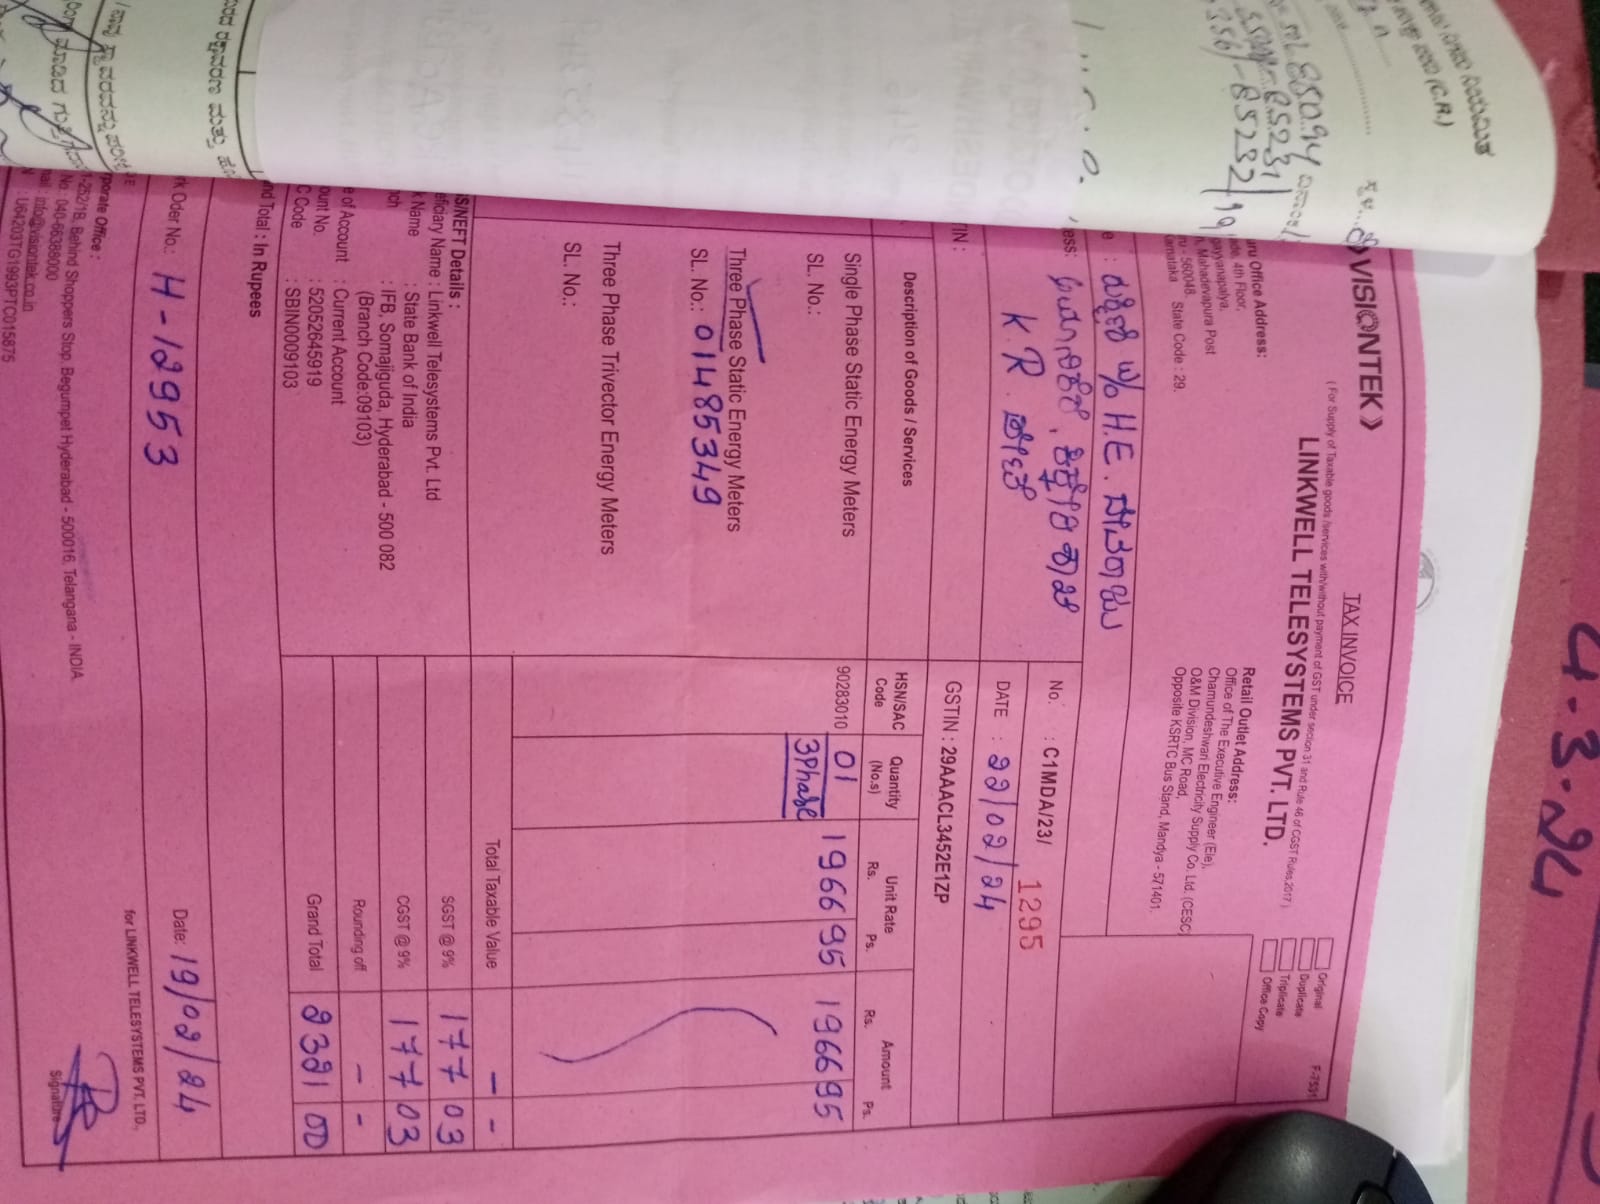 TAX INVOICE
F-7531
( For Supply of Taxable goods /services with/without payment of GST under section 31 and Rule 46 of CGST Rules,2017 )
VISIONTEK
LINKWELL TELESYSTEMS PVT. LTD.
Original
Duplicate
Triplicate
Office Copy
uru Office Address:
4th Floor,
payyanapalya,
Mahadevapura Post
560048.
arnataka State Code : 29.
Retail Outlet Address:
Office of The Executive Engineer (Ele),
Chamundeshwari Electricity Supply Co. Ltd. (CESC)
O&M Division, MC Road,
Opposite KSRTC Bus Stand, Mandya - 571401.
W/o H.E.
K.R.
No. : C1MDA/23/ 1295
DATE : 22/02/24
GSTIN : 29AAACL3452E1ZP
Description of Goods / Services
HSN/SAC Code
Quantity (No.s)
Unit Rate Rs. Ps.
Amount Rs. Ps.
Single Phase Static Energy Meters
90283010 01 1966 95 1966 95
SL. No.:
3Phase
Three Phase Static Energy Meters
SL. No.: 01485349
Three Phase Trivector Energy Meters
SL. No.:
Total Taxable Value - -
S/NEFT Details :
eficiary Name : Linkwell Telesystems Pvt. Ltd
SGST @ 9% 177 03
Name : State Bank of India
: IFB, Somajiguda, Hyderabad - 500 082
(Branch Code:09103)
CGST @ 9% 177 03
e of Account : Current Account
Rounding off - -
ount No. : 52052645919
C Code : SBIN0009103
Grand Total 2321 00
nd Total : In Rupees
rk Oder No.: H-12953
Date: 19/02/24
for LINKWELL TELESYSTEMS PVT. LTD.,
rporate Office :
1-252/1B, Behind Shoppers Stop, Begumpet Hyderabad - 500016. Telangana - INDIA
No: 040-66388000
ail : info@visiontek.co.in
U64203TG1993PTC015875
Signature
4.3.24
(C.R.)